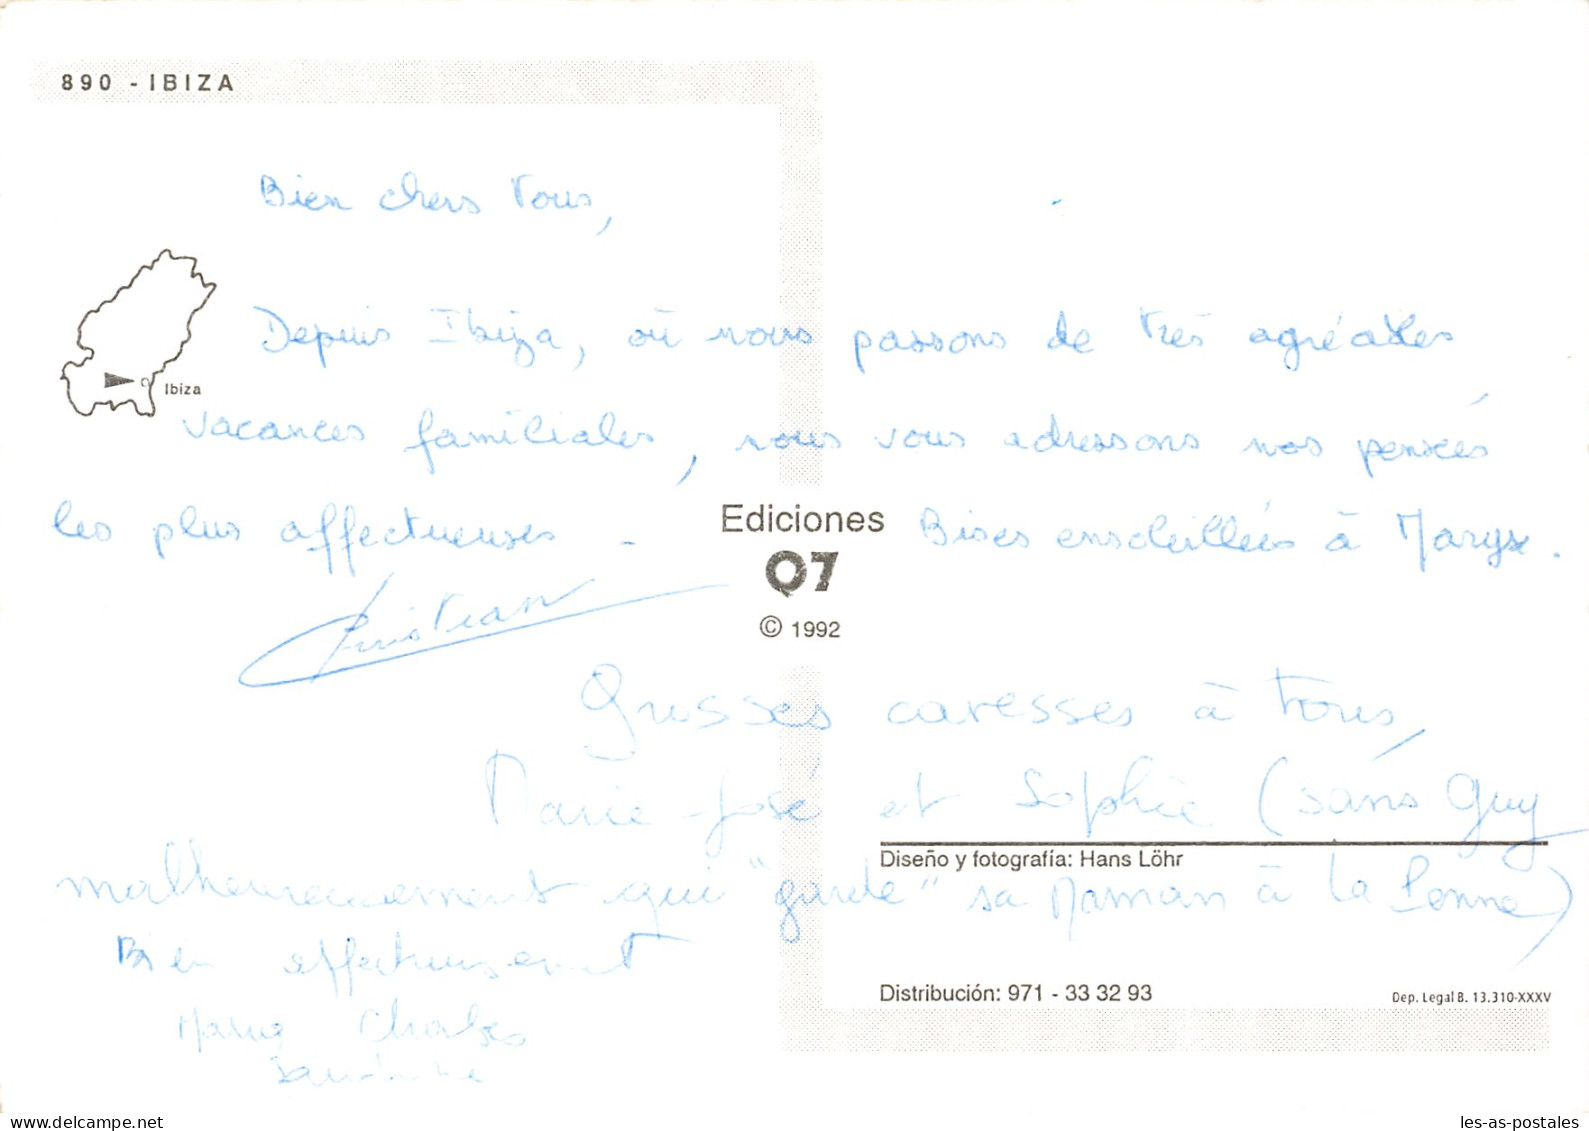 890 - IBIZA
Bien chers Vous,
Ibiza
Depuis Ibiza, où nous passons de très agréables
vacances familiales, nous vous adressons nos pensées
les plus affectueuses - Bises ensoleillées à Maryse.
Ediciones
07
© 1992
Christian
Grosses caresses à tous,
Marie-José et Sophie (sans Guy
Diseño y fotografía: Hans Löhr
malheureusement qui "garde" sa Maman à la
Bien affectueusement
Distribución: 971 - 33 32 93
Dep. Legal B. 13.310-XXXV
Charles
delcampe.net
les-as-postales